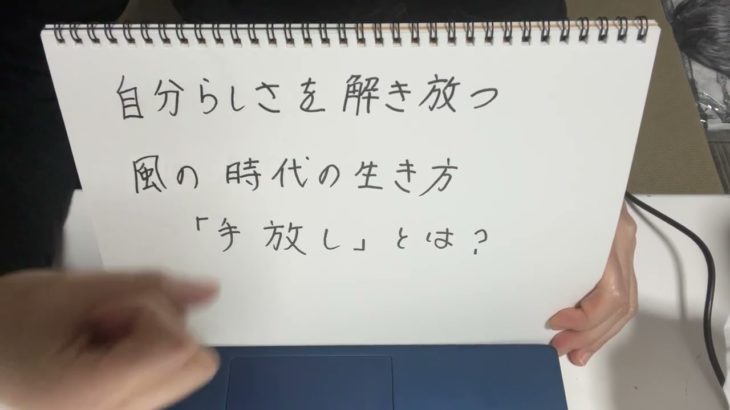 自分らしさを解き放つ
風の時代の生き方
「手放し」とは?